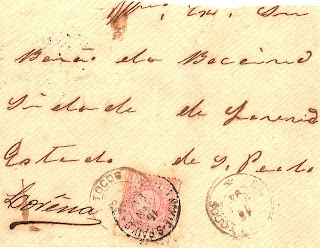 Exm. Snr
Barão da Bocaina
Cidade de Lorena
Estado de S. Paulo
Lorena
TOCOS
TOCOS